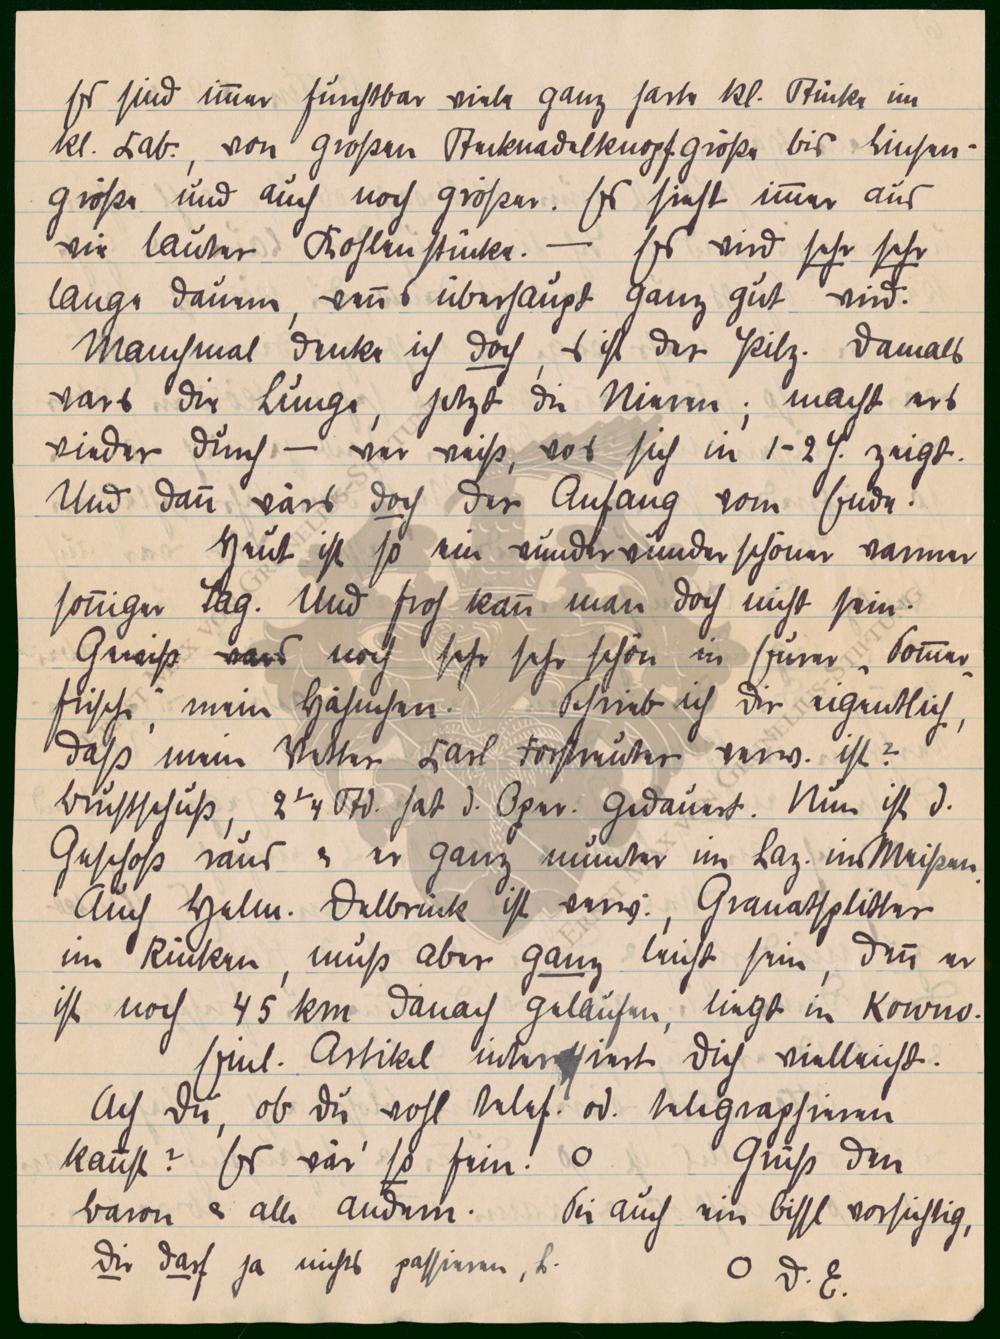 Es sind im̄er furchtbar viele ganz harte kl. Stücke im
kl. Lab., von großen Stecknadelknopfgröße bis Linsen-
größe und auch noch größer. Es sieht im̄er aus
wie lauter Kohlenstücke. — Es wird sehr sehr
lange dauern, wen̄s überhaupt ganz gut wird.
Manchmal denke ich doch, es ist der Pilz. Damals
wars die Lunge, jetzt die Nieren; macht ers
wieder durch — wer weiß, wos sich in 1-2 J. zeigt.
Und dan̄ wärs doch der Anfang vom Ende.
Heut ist so ein wunderwunderschöner warmer
son̄iger Tag. Und froh kan̄ man doch nicht sein.
Gewiß wars noch sehr sehr schön in Eurer „Som̄er-
frische", mein Hähnchen. Schrieb ich Dir eigentlich,
daß mein Vetter Carl Forstreuter verw. ist?
Brustschuß, 2¼ Std. hat d. Oper. gedauert. Nun ist d.
Geschoß raus & er ganz munter im Laz. in Meißen.
Auch Helm. Delbrück ist verw., Granatsplitter
im Rücken, muß aber ganz leicht sein, den̄ er
ist noch 45 km danach gelaufen, liegt in Kowno.
Einl. Artikel interessiert Dich vielleicht.
Ach Du, ob Du wohl telef. od. telegraphieren
kan̄st? Es wär' so fein! O Grüß den
Baron & alle andern. Sei auch ein bissl vorsichtig,
Dir darf ja nichts passieren, L.
O D. E.
ERNST MAX VON GRUNELIUS-STIFTUNG
ERNST MAX VON GRUNELIUS-STIFTUNG